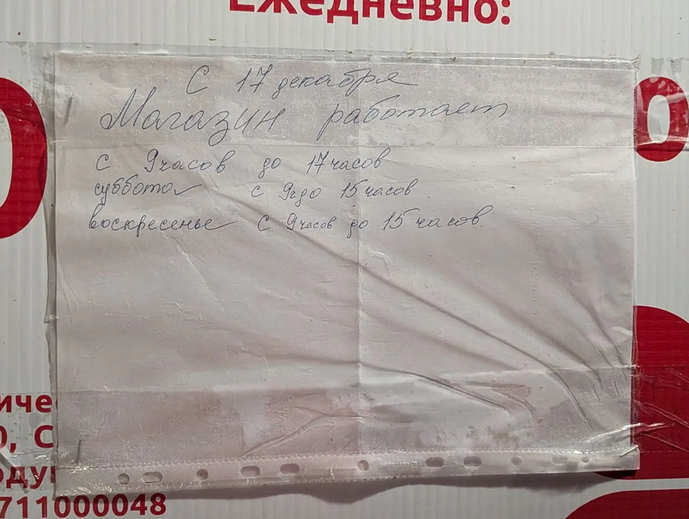 Ежедневно:
С 17 декабря
Магазин работает
с 9 часов до 17 часов
суббота с 9 до 15 часов
воскресенье с 9 часов до 15 часов.
711000048